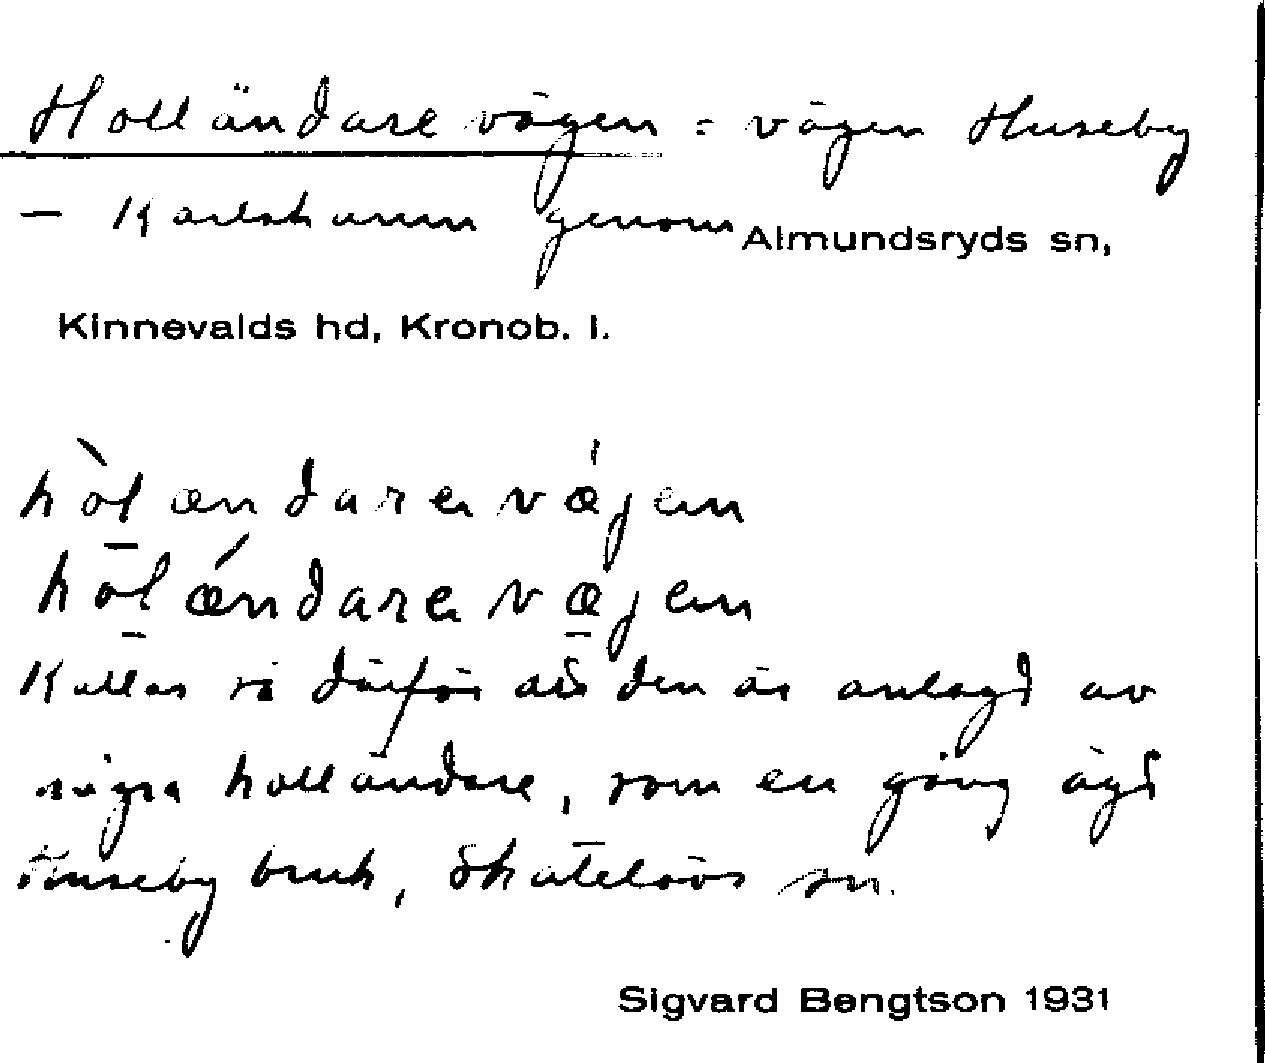 Holländarevägen = vägen Huseby
— Karlshamn genom Almundsryds sn,
Kinnevalds hd, Kronob. l.
hòlændarevǽjen
hòlǽndarevæjen
Kallas så därför att den är anlagd av
några holländare, som en gång ägt
Huseby bruk, Skatelövs sn.
Sigvard Bengtson 1931